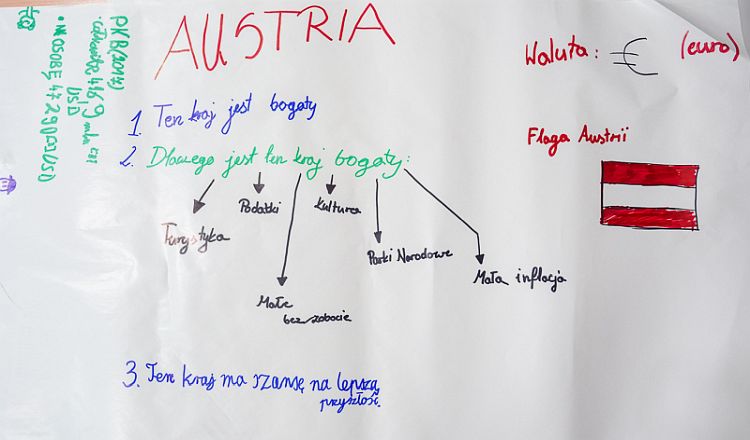 AUSTRIA
Waluta: € (euro)
Flaga Austrii
PKB(2014)
• całkowite 416,9 mld
USD
• NA OSOBĘ 47 290,91 USD
1. Ten kraj jest bogaty
2. Dlaczego jest ten kraj bogaty:
Turystyka
Podatki
Małe
bezrobocie
Kultura
Parki Narodowe
Mała inflacja
3. Ten kraj ma szansę na lepszą
przyszłość.